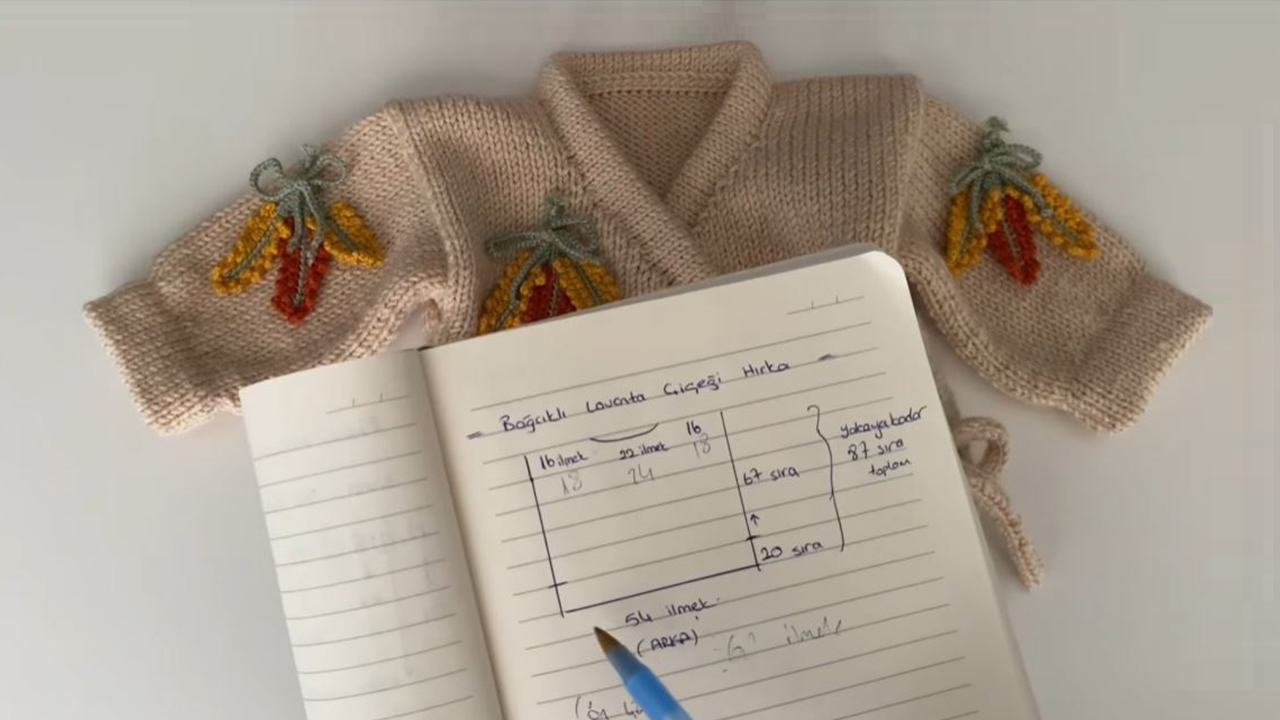 Bağcıklı Lavanta Çiçeği Hırka
16 ilmek 22 ilmek 16
18 24 18
67 sıra
20 sıra
yakaya kadar
87 sıra
toplam
54 ilmek
(ARKA)
ilmek